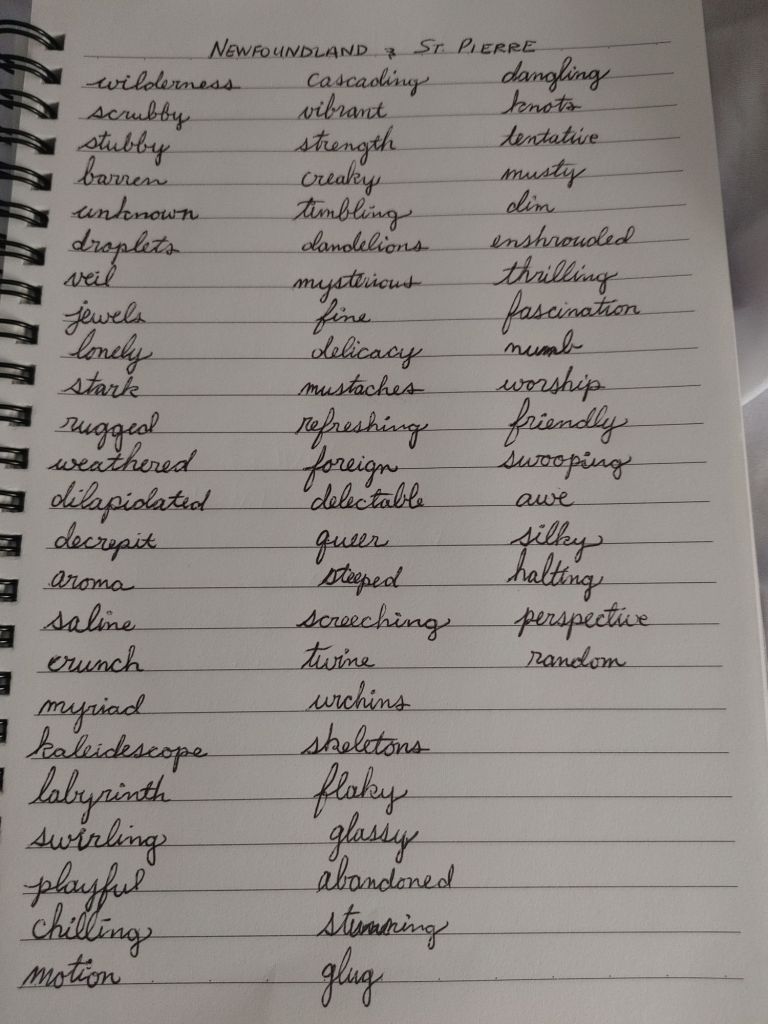 NEWFOUNDLAND & ST. PIERRE
wilderness cascading dangling
scrubby vibrant knots
stubby strength tentative
barren creaky musty
unknown timbling dim
droplets dandelions enshrouded
veil mysterious thrilling
jewels fine fascination
lonely delicacy numb
stark mustaches worship
rugged refreshing friendly
weathered foreign swooping
dilapidated delectable awe
decrepit queer silky
aroma steeped halting
saline screeching perspective
crunch twine random
myriad urchins
kaleidescope skeletons
labyrinth flaky
swirling glassy
playful abandoned
chilling stunning
motion glug